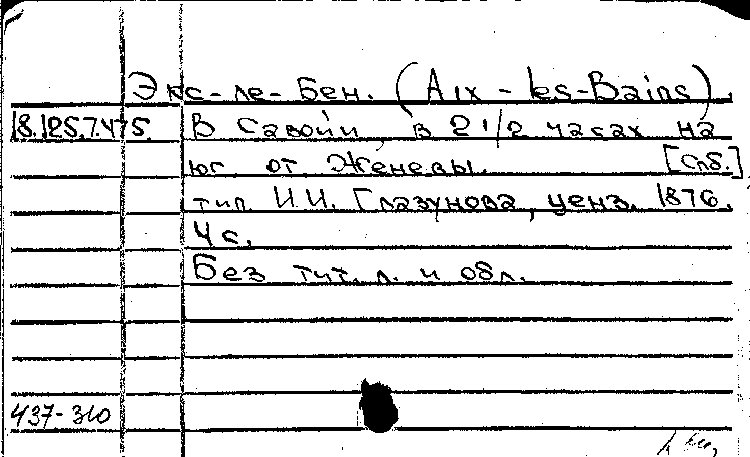 Экс-ле-Бен. (Aix-les-Bains).
18.125.7.475. В Савойи, в 2 1/2 часах на
юг от Женевы. [Спб.],
тип. И.И. Глазунова, ценз. 1876.
4 с.
Без тит. л. и обл.
437-310